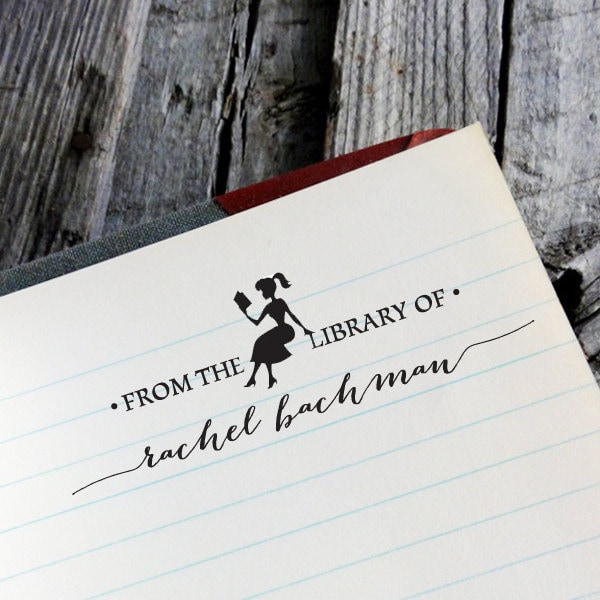 • FROM THE LIBRARY OF •
rachel bachman